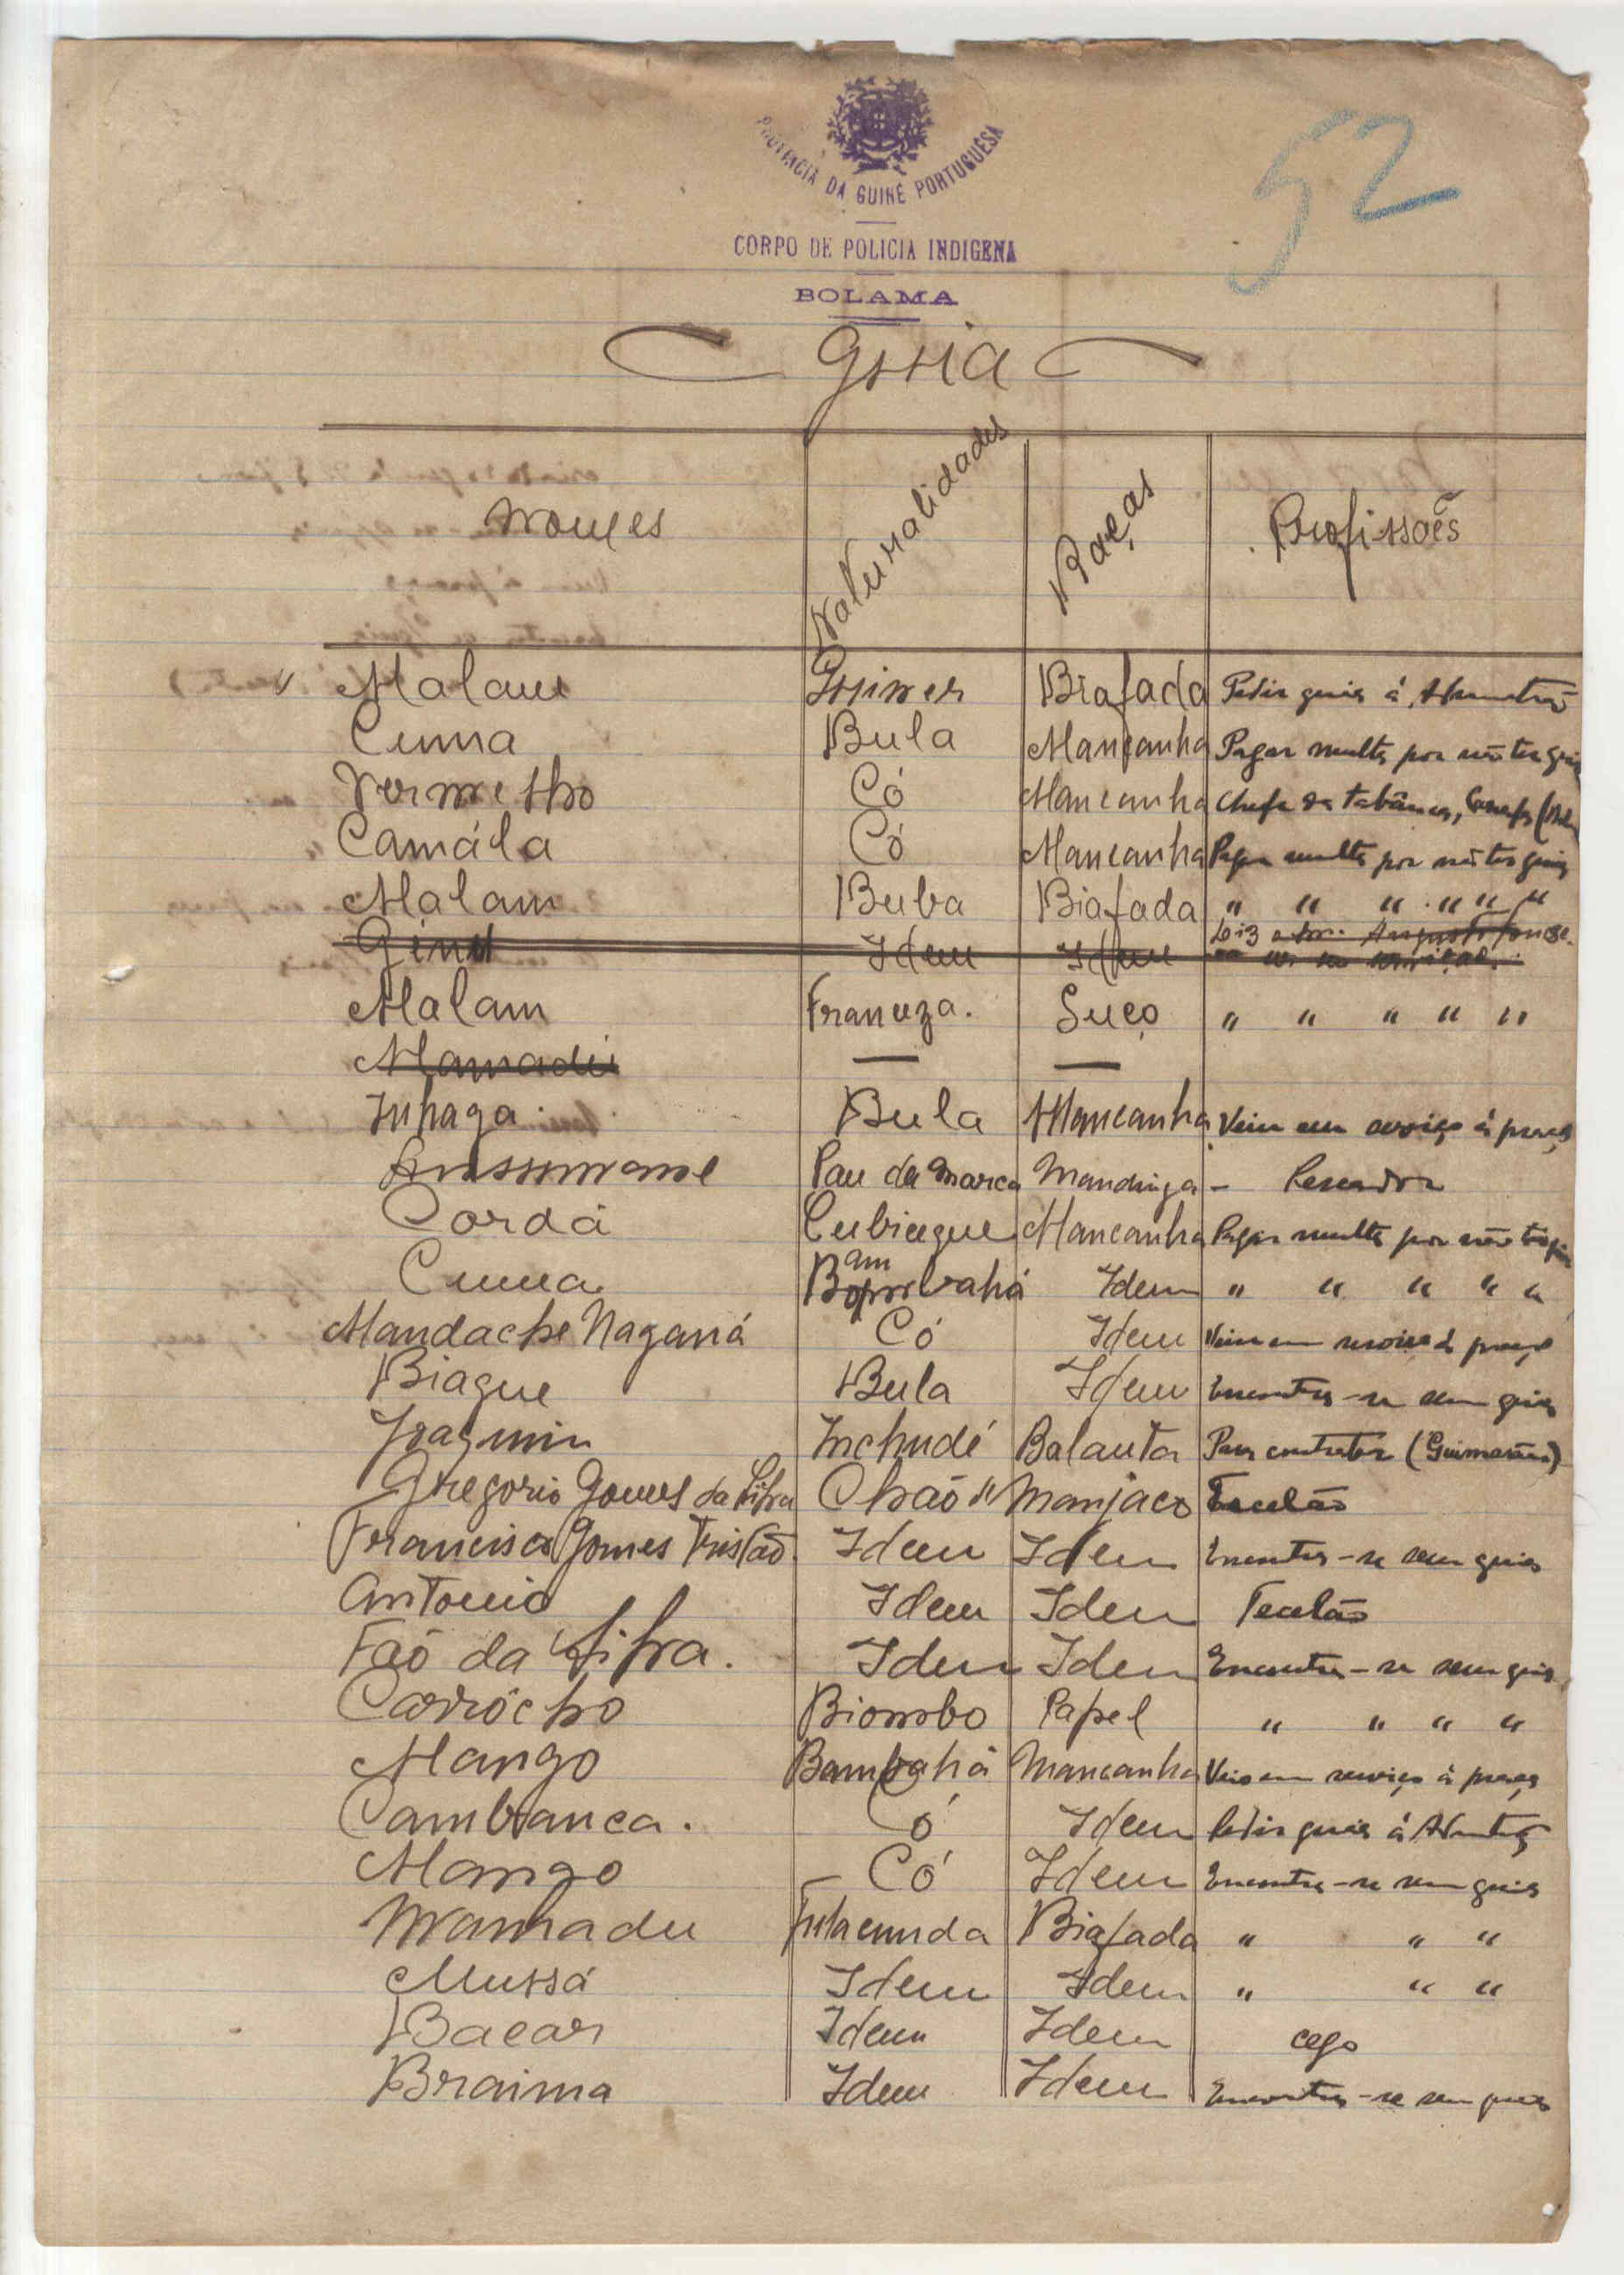 52
PROVINCIA DA GUINÉ PORTUGUESA
CORPO DE POLICIA INDIGENA
BOLAMA
Nomes Naturalidades Raças Profissões
Malam Biafada Pedir guia á
Cunna Bula Mancanha Pagar multa por não ter guia
Vermelho Có Mancanha Chefe da tabânca,
Camála Có Mancanha Pagar multa por não ter guia
Malam Buba Biafada " " " " " "
Idem Idem
Malam Franceza. Suço " " " " "
Mamadú — —
Inhaga. Bula Mancanha Veiu em serviço á praça
Pau da Marca Mandinga - Pescador
Cordá Mancanha Pagar multa por não ter guia
Cunna Idem " " " " "
Mandache Naganá Có Idem Veiu em serviço á praça
Biague Bula Idem Encontra-se sem guia
Inchudé Balanta Para contratar (Guimarães)
Gregorio Gomes da Silva Chaõ de Manjaco Tecelão
Francisco Gomes Tristaõ. Idem Idem Encontra-se sem guia
Antonio Idem Idem Tecelão
Faó da Silva. Idem Idem Encontra-se sem guia
Carrócho Biombo Papel " " " "
Mango Bambahá Mancanha Veio em serviço á praça
Cambanca. Có Idem Pedir guia á
Mango Có Idem Encontra-se sem guia
Mamadu Fulacunda Biafada " " "
Mussá Idem Idem " " "
Bacar Idem Idem cego
Braima Idem Idem Encontra-se sem guia